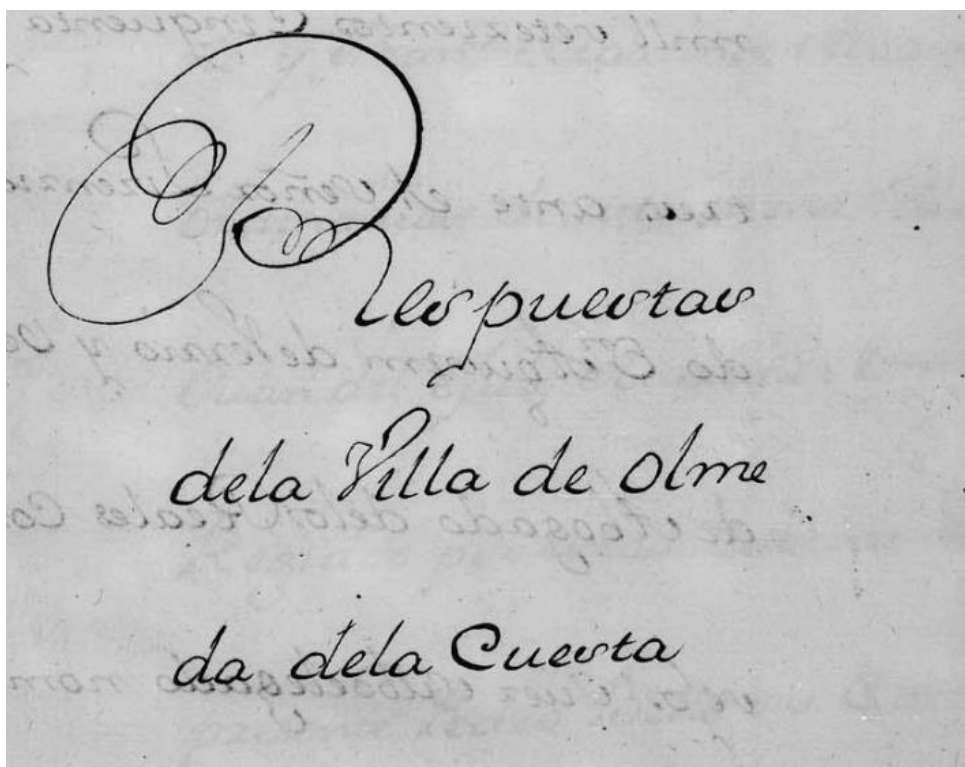 Respuestas
dela Villa de Olme
da dela Cuesta